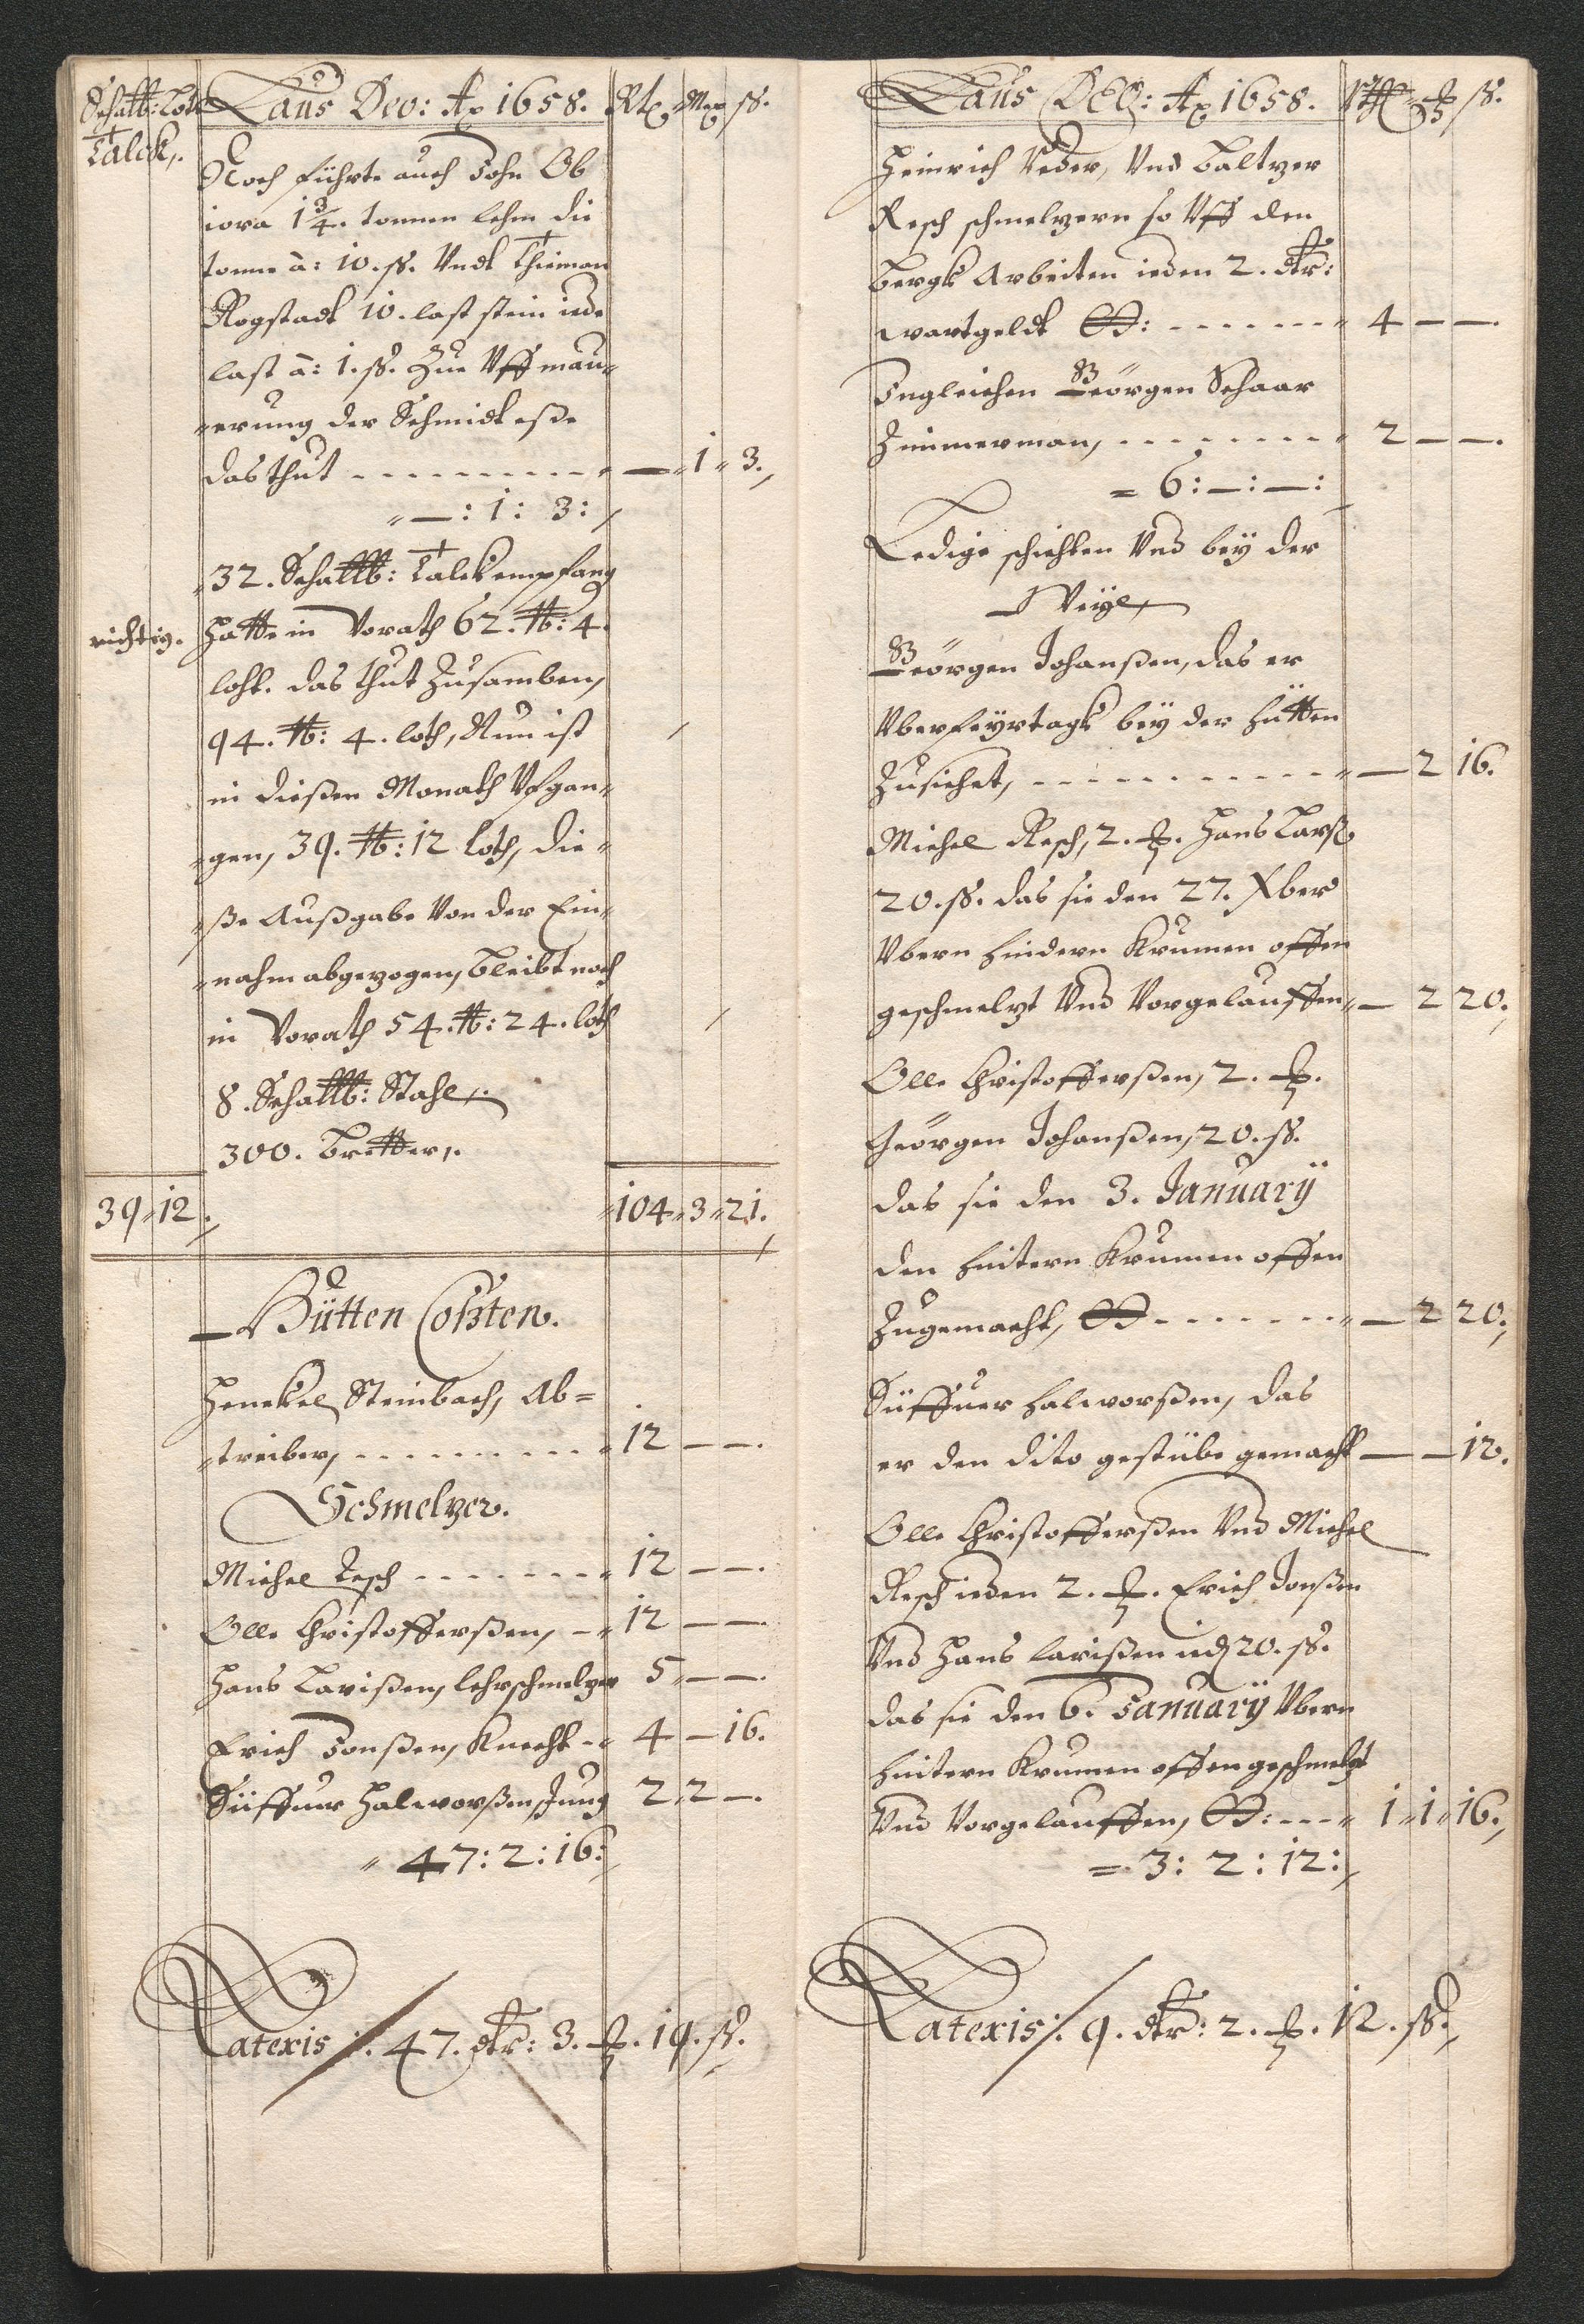 Schalb: Loth
Talck,.
Laus Deo: Ao 1658. Rtl. Mar ß.
Noch führte auch John Ob
iora 1¾. tonnen lehm die
tonne à: 10. ß. Undt Thieman
Rogstadt 10. last stein iede
last à: 1. ß. Zue Uff mau-
-erung der Schmidt eße
das thut - - - - - - - - - — 1 3.
— : 1 : 3 :
32. Schallb: Talck empfang
richtig. Hatte in Vorath 62. lb: 4.
loht. das thut Zusamben,
94. lb: 4. loth, Nun ist
in dießen Monath Ufgan-
-gen, 39. lb: 12 loth, die-
-ße Außgabe Von der Ein-
-nahm abgezogen, bleibt noch
in Vorath 54. lb: 24. loth
8. Schallb: Stahl,.
300. Bretter,.
39 12. 104 3 21.
Hütten Costen.
Henckel Steinbach, Ab=
-treiber, - - - - - - - - - 12 — —.
Schmelzer.
Michel Resch - - - - - - - 12 — —.
Olle Christofferßen, - 12 — —.
Hans Larißen, lehrschmelzer 5 — —.
Erich Jonßen, Knecht - 4 — 16.
Siuffuer Halworßen Jung 2 2 —.
47 : 2 : 16 :
Lateris :/. 47. dlr: 3. . 19. ß.
Laus DEO: Ao 1658. ß.
Heinrich Veder, Und Baltzer
Resch schmelzern so Uff den
Bergk Arbeiten ieden 2. dlr:
wartgeldt : - - - - - - - 4 — —.
Ingleichen Geörgen Schaar
Zimmerman, - - - - - - - - 2 — —.
= 6 : — : — :
Ledige schichten Und bey der
Weyl,
Geörgen Johanßen, das er
Uber feyrtagk bey der hütten
Zusiehet, - - - - - - - - - - — 2 16.
Michel Resch, 2. . Hans Larß
20. ß. das sie den 27. Xber
Ubern hindern Krumen offen
geschmelzt Und Vorgelauffen — 2 20.
Olle Christofferßen, 2. .
Geörgen Johanßen, 20. ß.
das sie den 3. January
den hintern Krumen offen
Zugemacht, - - - - - - - — 2 20.
Siuffuer halworßen, das
er den dito gestübe gemacht — — 12.
Olle Christofferßen Und Michel
Resch ieden 2. . Erich Jonßen
Und Hans larißen ied 20. ß.
das sie den 6. January Ubern
hintern Krumen offen geschmelzt
Und Vorgelauffen, : - - - 1 1 16.
= 3 : 2 : 12 :
Lateris :/. 9. dlr: 2. . 12. ß.